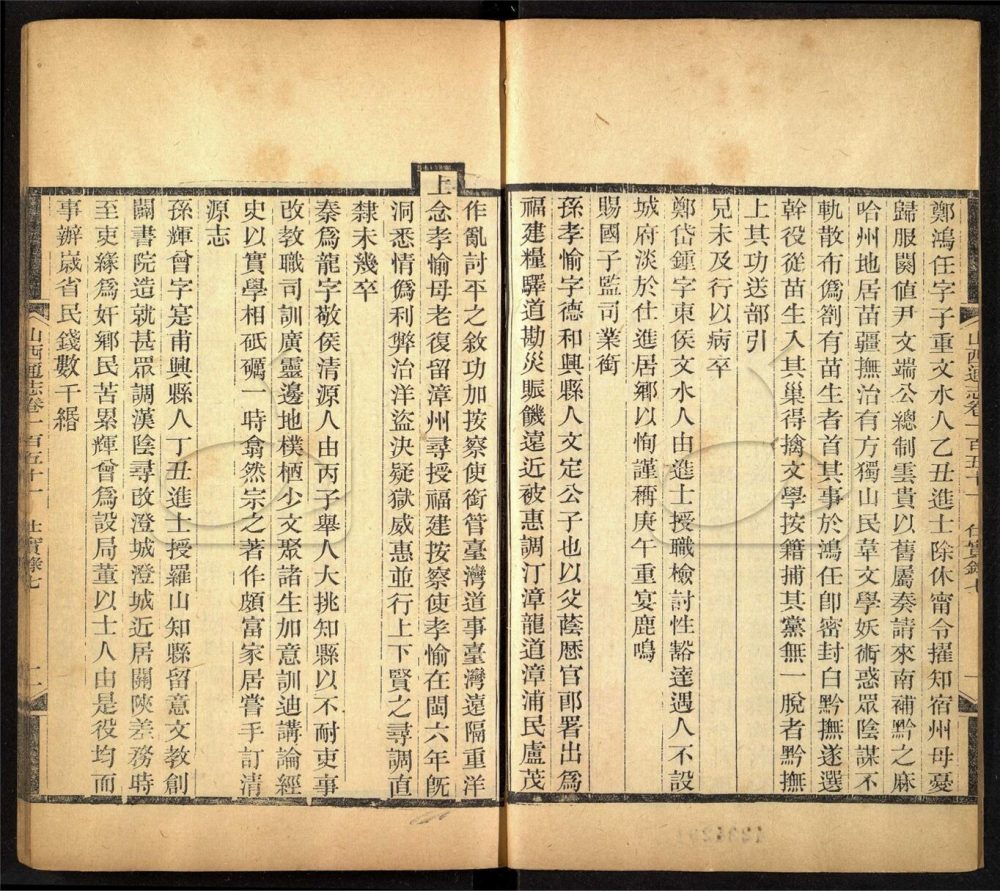 鄭鴻任字子重文水人乙丑進士除休甯令擢知宿州母憂
歸服闋值尹文端公總制雲貴以舊屬奏請來南補黔之麻
哈州地居苗疆撫治有方獨山民韋文學妖術惑眾陰謀不
軌散布僞劄有苗生者首其事於鴻任卽密封白黔撫遂選
幹役從苗生入其巢得擒文學按籍捕其黨無一脫者黔撫
上其功送部引
見未及行以病卒
鄭岱鍾字東侯文水人由進士授職檢討性豁達遇人不設
城府淡於仕進居鄉以恂謹稱庚午重宴鹿鳴
賜國子監司業銜
孫孝愉字德和興縣人文定公子也以父蔭歷官郎署出爲
福建糧驛道勘災賑饑遠近被惠調汀漳龍道漳浦民盧茂
山西通志卷一百五十一 仕實錄七 一
作亂討平之敘功加按察使銜管臺灣道事臺灣遠隔重洋
上念孝愉母老復留漳州尋授福建按察使孝愉在閩六年旣
洞悉情僞利弊治洋盜決疑獄威惠並行上下賢之尋調直
隸未幾卒
秦爲龍字敬侯清源人由丙子舉人大挑知縣以不耐吏事
改教職司訓廣靈邊地樸楝少文聚諸生加意訓迪講論經
史以實學相砥礪一時翕然宗之著作頗富家居嘗手訂清
源志
孫輝曾字寔甫興縣人丁丑進士授羅山知縣留意文教創
闢書院造就甚眾調漢陰尋改澄城澄城近居關陝差務時
至吏緣爲奸鄉民苦累輝曾爲設局董以士人由是役均而
事辦歲省民錢數千緡
山西通志卷一百五十一 仕實錄七 二